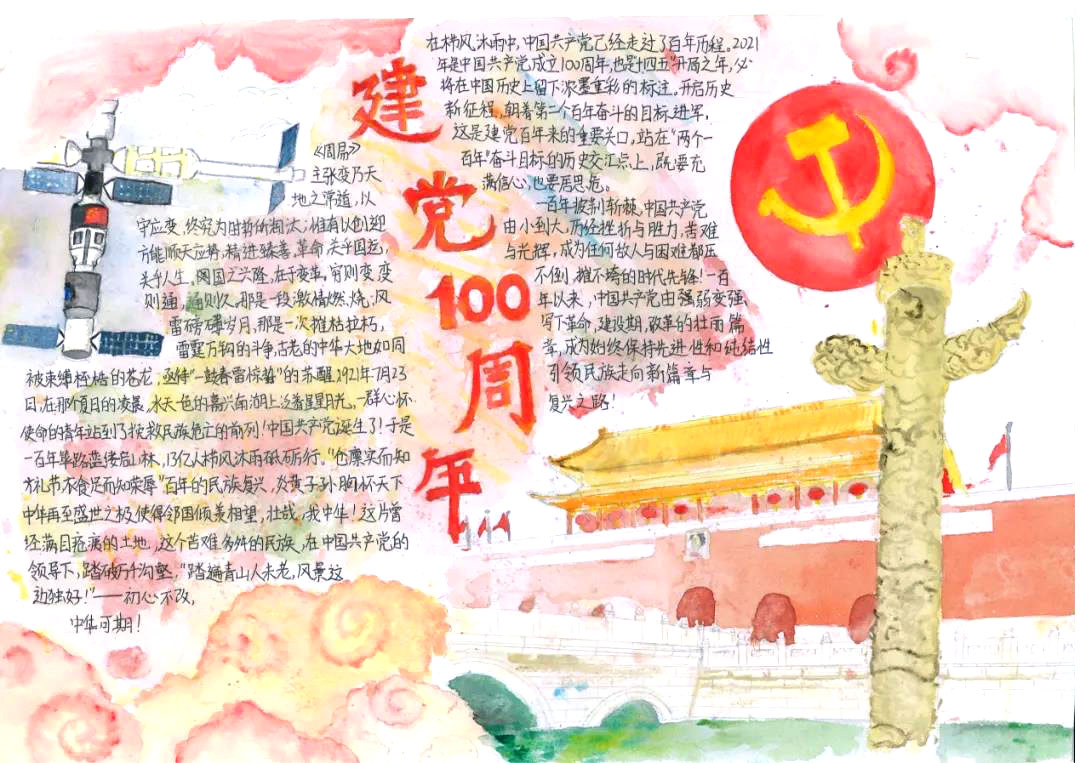 建党100周年
《周易》
主张变乃天
地之常道，以
守应变，终究为时哲所淘汰；惟有以创迎
方能顺天应势，精进臻善，革命关乎国运，
关乎人生。阅国之兴隆，在于变革，穷则变，变
则通，通则久。那是一段激情燃烧；风
雷磅礴岁月，那是一次摧枯拉朽，
雷霆万钧的斗争，古老的中华大地如同
被束缚桎梏的苍龙，亟待“一鼓春雷惊蛰”的苏醒，1921年7月23
日，在那个夏日的凌晨，水天一色的嘉兴南湖上泛着星星月光。一群心怀
使命的青年站到了拯救民族危亡的前列！中国共产党诞生了！于是
一百年筚路蓝缕启山林，13亿人栉风沐雨砥砺行。“仓廪实而知
方礼节不食足而知荣辱”百年的民族复兴，炎黄子孙胸怀天下
中华再至盛世之极，使得邻国倾羡相望，壮哉，我中华！这片曾
经满目疮痍的土地，这个苦难多舛的民族，在中国共产党的
领导下，踏破万千沟壑，“踏遍青山人未老，风景这
边独好！”——初心不改，
中华可期！
在栉风沐雨中，中国共产党已经走过了百年历程。2021
年是中国共产党成立100周年，也是十四五”开局之年，必
将在中国历史上留下浓墨重彩的标注。开启历史
新征程，朝着第二个百年奋斗的目标进军，
这是建党百年来的重要关口，站在“两个一
百年”奋斗目标的历史交汇点上，既要充
满信心，也要居思危。
一百年披荆斩棘，中国共产党
由小到大，历经挫折与胜力，苦难
与光辉，成为任何敌人与困难都压
不倒，摧不垮的时代先锋！一百
年以来，中国共产党由强弱变强，
写下革命，建设期，改革的壮丽篇
章，成为始终保持先进性和纯结性
引领民族走向新篇章与
复兴之路！